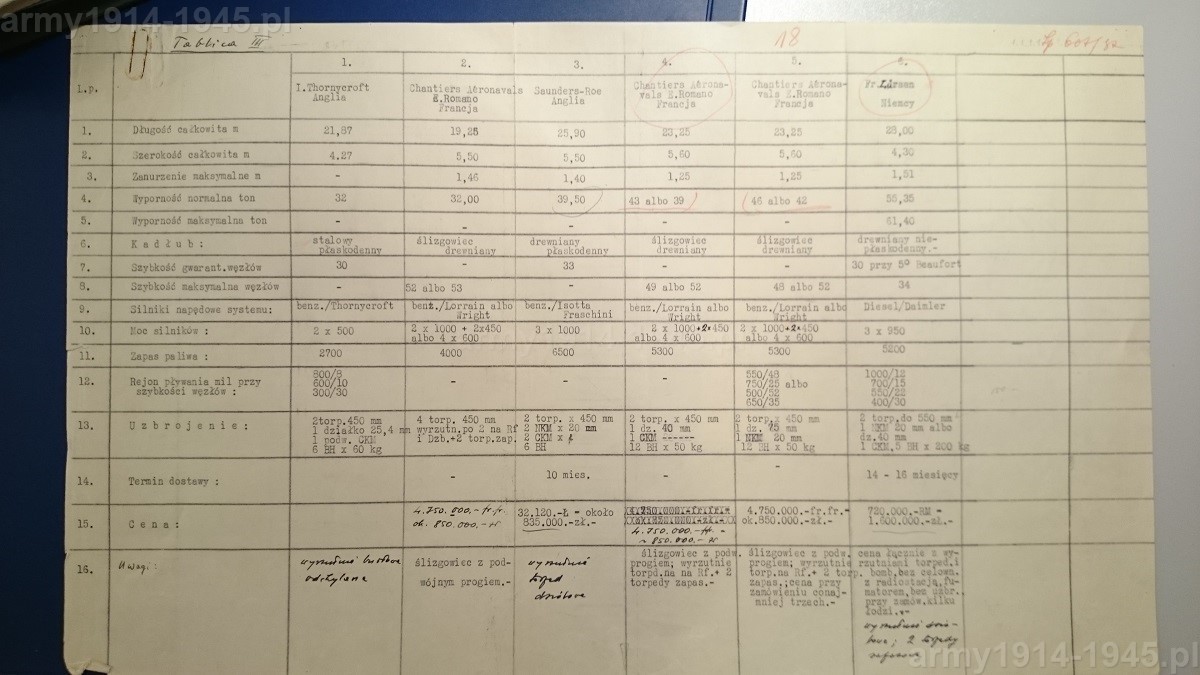 army1914-1945.pl
Tablica III
18
607/32
1. 2. 3. 4. 5. 6.
L.p. I.Thornycroft Chantiers Aéronavals Saunders-Roe Chantiers Aérona- Chantiers Aérona- Fr.Lürsen
Anglia E.Romano Anglia vals E.Romano vals E.Romano Niemcy
Francja Francja Francja
1. Długość całkowita m 21,87 19,25 25,90 23,25 23,25 28,00
2. Szerokość całkowita m 4.27 5,50 5,50 5,60 5,60 4,30
3. Zanurzenie maksymalne m - 1,46 1,40 1,25 1,25 1,51
4. Wyporność normalna ton 32 32,00 39,50 43 albo 39 46 albo 42 55,35
5. Wyporność maksymalna ton - - - - - 61,40
6. Kadłub: stalowy ślizgowiec drewniany ślizgowiec ślizgowiec drewniany nie-
płaskodenny drewniany płaskodenny drewniany drewniany płaskodenny.-
7. Szybkość gwarant.węzłów 30 - 33 - - 30 przy 5° Beaufort
8. Szybkość maksymalna węzłów - 52 albo 53 - 49 albo 52 48 albo 52 34
9. Silniki napędowe systemu: benz./Thornycroft benz./Lorrain albo benz./Isotta benz./Lorrain albo benz./Lorrain albo Diesel/Daimler
Wright Fraschini Wright Wright
10. Moc silników : 2 x 500 2 x 1000 + 2x450 3 x 1000 2 x 1000+2x450 2 x 1000+2x450 3 x 950
albo 4 x 600 albo 4 x 600 albo 4 x 600
11. Zapas paliwa : 2700 4000 6500 5300 5300 5200
12. Rejon pływania mil przy 800/8 - - - 550/48 1000/12
szybkości węzłów : 600/10 750/25 albo 700/15
300/30 500/52 550/22
650/35 400/30
13. Uzbrojenie: 2torp.450 mm 4 torp. 450 mm 2 torp. x 450 mm 2 torp. x 450 mm 2 torp. x 450 mm 2 torp.do 550 mm
1 działko 25,4 mm wyrzutn.po 2 na Rf 2 NKM x 20 mm 1 dz. 40 mm 1 dz. 75 mm 1 NKM 20 mm albo
1 podw. CKM i Dzb.+2 torp.zap. 2 CKM x 1 CKM ------ 1 NKM 20 mm dz.40 mm
6 BH x 60 kg 6 BH 12 BH x 50 kg 12 BH x 50 kg 1 CKM,5 BH x 200 kg
14. Termin dostawy : - 10 mies. - - 14 - 16 miesięcy
15. Cena: 4.750.000.- fr.fr. 32.120.-Ł = około 4.750.000.-fr.fr.- 4.750.000.-fr.fr.- 720.000.-RM =
ok. 850.000.- zł 835.000.-zł. 4.750.000.- ff.- ok.850.000.-zł.- 1.600.000.-zł.-
~ 850.000.- zł
16. Uwagi: wyrzutnie burtowe ślizgowiec z pod- wyrzutnie ślizgowiec z podw. ślizgowiec z podw. cena łącznie z wy-
odchylane wójnym progiem.- torped progiem; wyrzutnie progiem; wyrzutnie rzutniami torped.i
dziobowe torpd.na na Rf.+ 2 torp.na Rf.+ 2 torp. bomb,bez celown.
torpedy zapas.- zapas.;cena przy z radiostacją,fu-
zamówieniu conaj- matorem,bez uzbr.,
mniej trzech.- przy zamów.kilku
łodzi..-
wyrzutnie dzio-
bowe; 2 torpedy
army1914-1945.pl